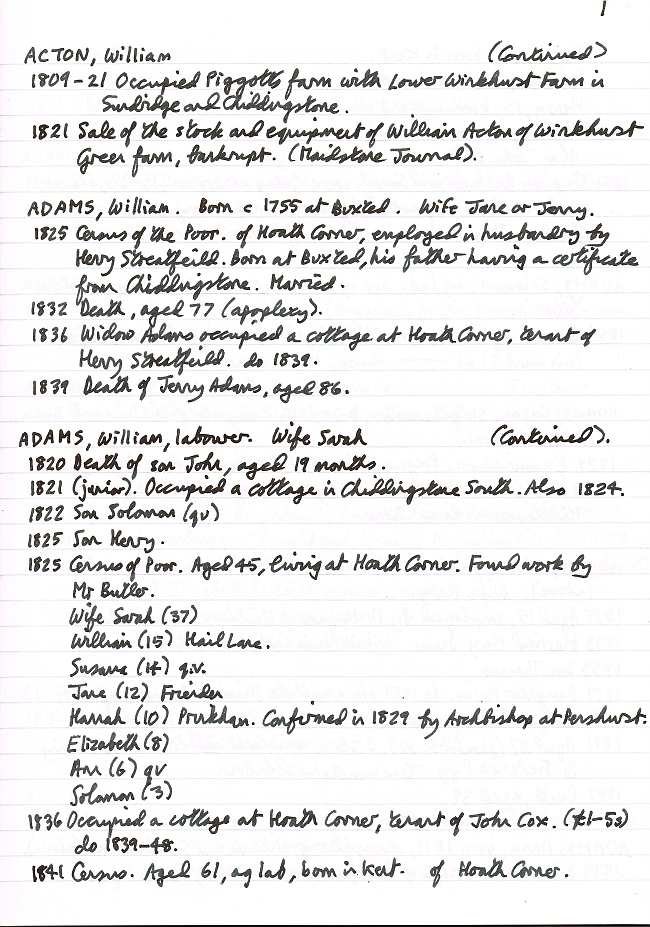 1
ACTON, William (Continued)
1809-21 Occupied Piggotts farm with Lower Winkhurst Farm in
Sundridge and Chiddingstone.
1821 Sale of the stock and equipment of William Acton of Winkhurst
Green farm, bankrupt. (Maidstone Journal).
ADAMS, William. Born c 1755 at Buxted. Wife Jane or Jenny.
1825 Census of the Poor. of Hoath Corner, employed in husbandry by
Henry Streatfeild. Born at Buxted, his father having a certificate
from Chiddingstone. Married.
1832 Death, aged 77 (apoplexy).
1836 Widow Adams occupied a cottage at Hoath Corner, tenant of
Henry Streatfeild. do 1839.
1839 Death of Jenny Adams, aged 86.
ADAMS, William, labourer. Wife Sarah (Continued).
1820 Death of son John, aged 19 months.
1821 (junior). Occupied a cottage in Chiddingstone South. Also 1824.
1822 Son Solomon (qv)
1825 Son Henry.
1825 Census of Poor. Aged 45, living at Hoath Corner. Found work by
Mr Butler.
Wife Sarah (37)
William (15) Hail Lane.
Susanna (14) q.v.
Jane (12)
Hannah (10) Confirmed in 1829 by Archbishop at Penshurst.
Elizabeth (8)
Ann (6) qv
Solomon (3)
1836 Occupied a cottage at Hoath Corner, tenant of John Cox. (£1-5s)
do 1839-48.
1841 Census. Aged 61, ag lab, born in Kent. of Hoath Corner.